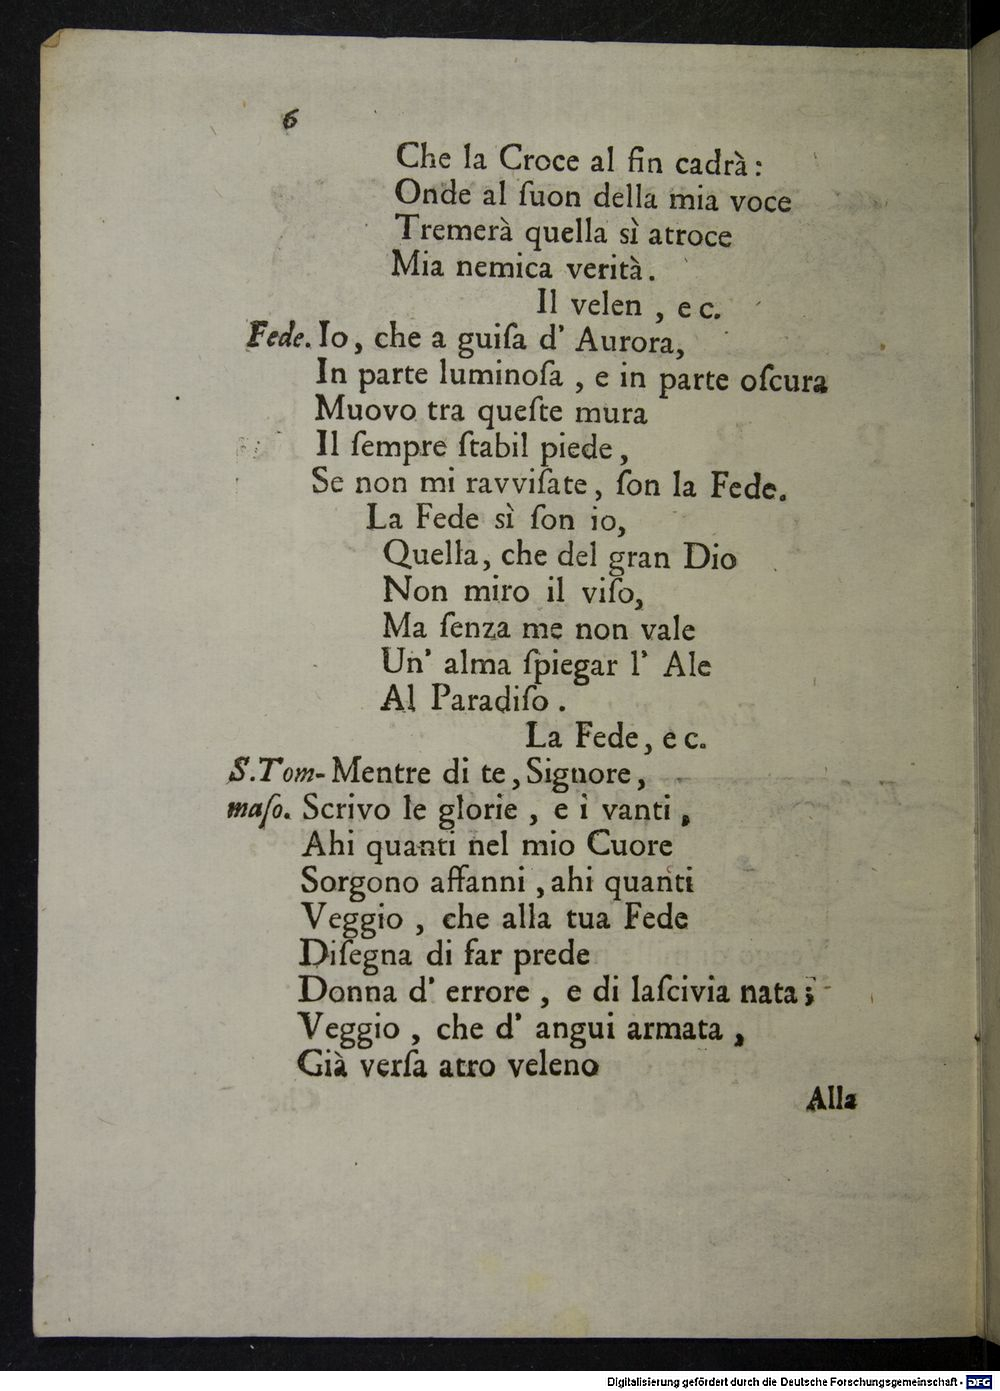 6
Che la Croce al fin cadrà:
Onde al ſuon della mia voce
Tremerà quella sì atroce
Mia nemica verità.
Il velen , e c.
Fede. Io, che a guiſa d' Aurora,
In parte luminoſa , e in parte oſcura
Muovo tra queſte mura
Il ſempre ſtabil piede,
Se non mi ravviſate, ſon la Fede.
La Fede sì ſon io,
Quella, che del gran Dio
Non miro il viſo,
Ma ſenza me non vale
Un' alma ſpiegar l' Ale
Al Paradiſo .
La Fede, e c.
S.Tom- Mentre di te, Signore,
maſo. Scrivo le glorie , e i vanti,
Ahi quanti nel mio Cuore
Sorgono affanni , ahi quanti
Veggio , che alla tua Fede
Diſegna di far prede
Donna d' errore , e di laſcivia nata;
Veggio , che d' angui armata ,
Già verſa atro veleno
Alla
Digitalisierung gefördert durch die Deutsche Forschungsgemeinschaft - DFG